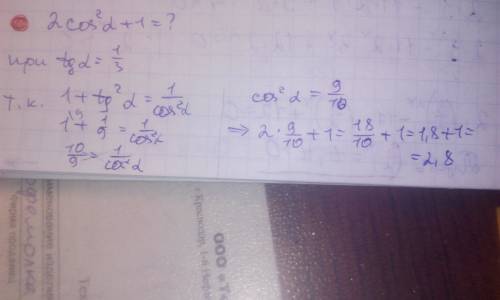 2cos²α+1=?
при tgα=1/3
т.к. 1+tg²α=1/cos²α
1+1/9=1/cos²α
10/9=1/cos²α
cos²α=9/10
⇒ 2·9/10+1=18/10+1=1,8+1=
=2,8
ООО «Т